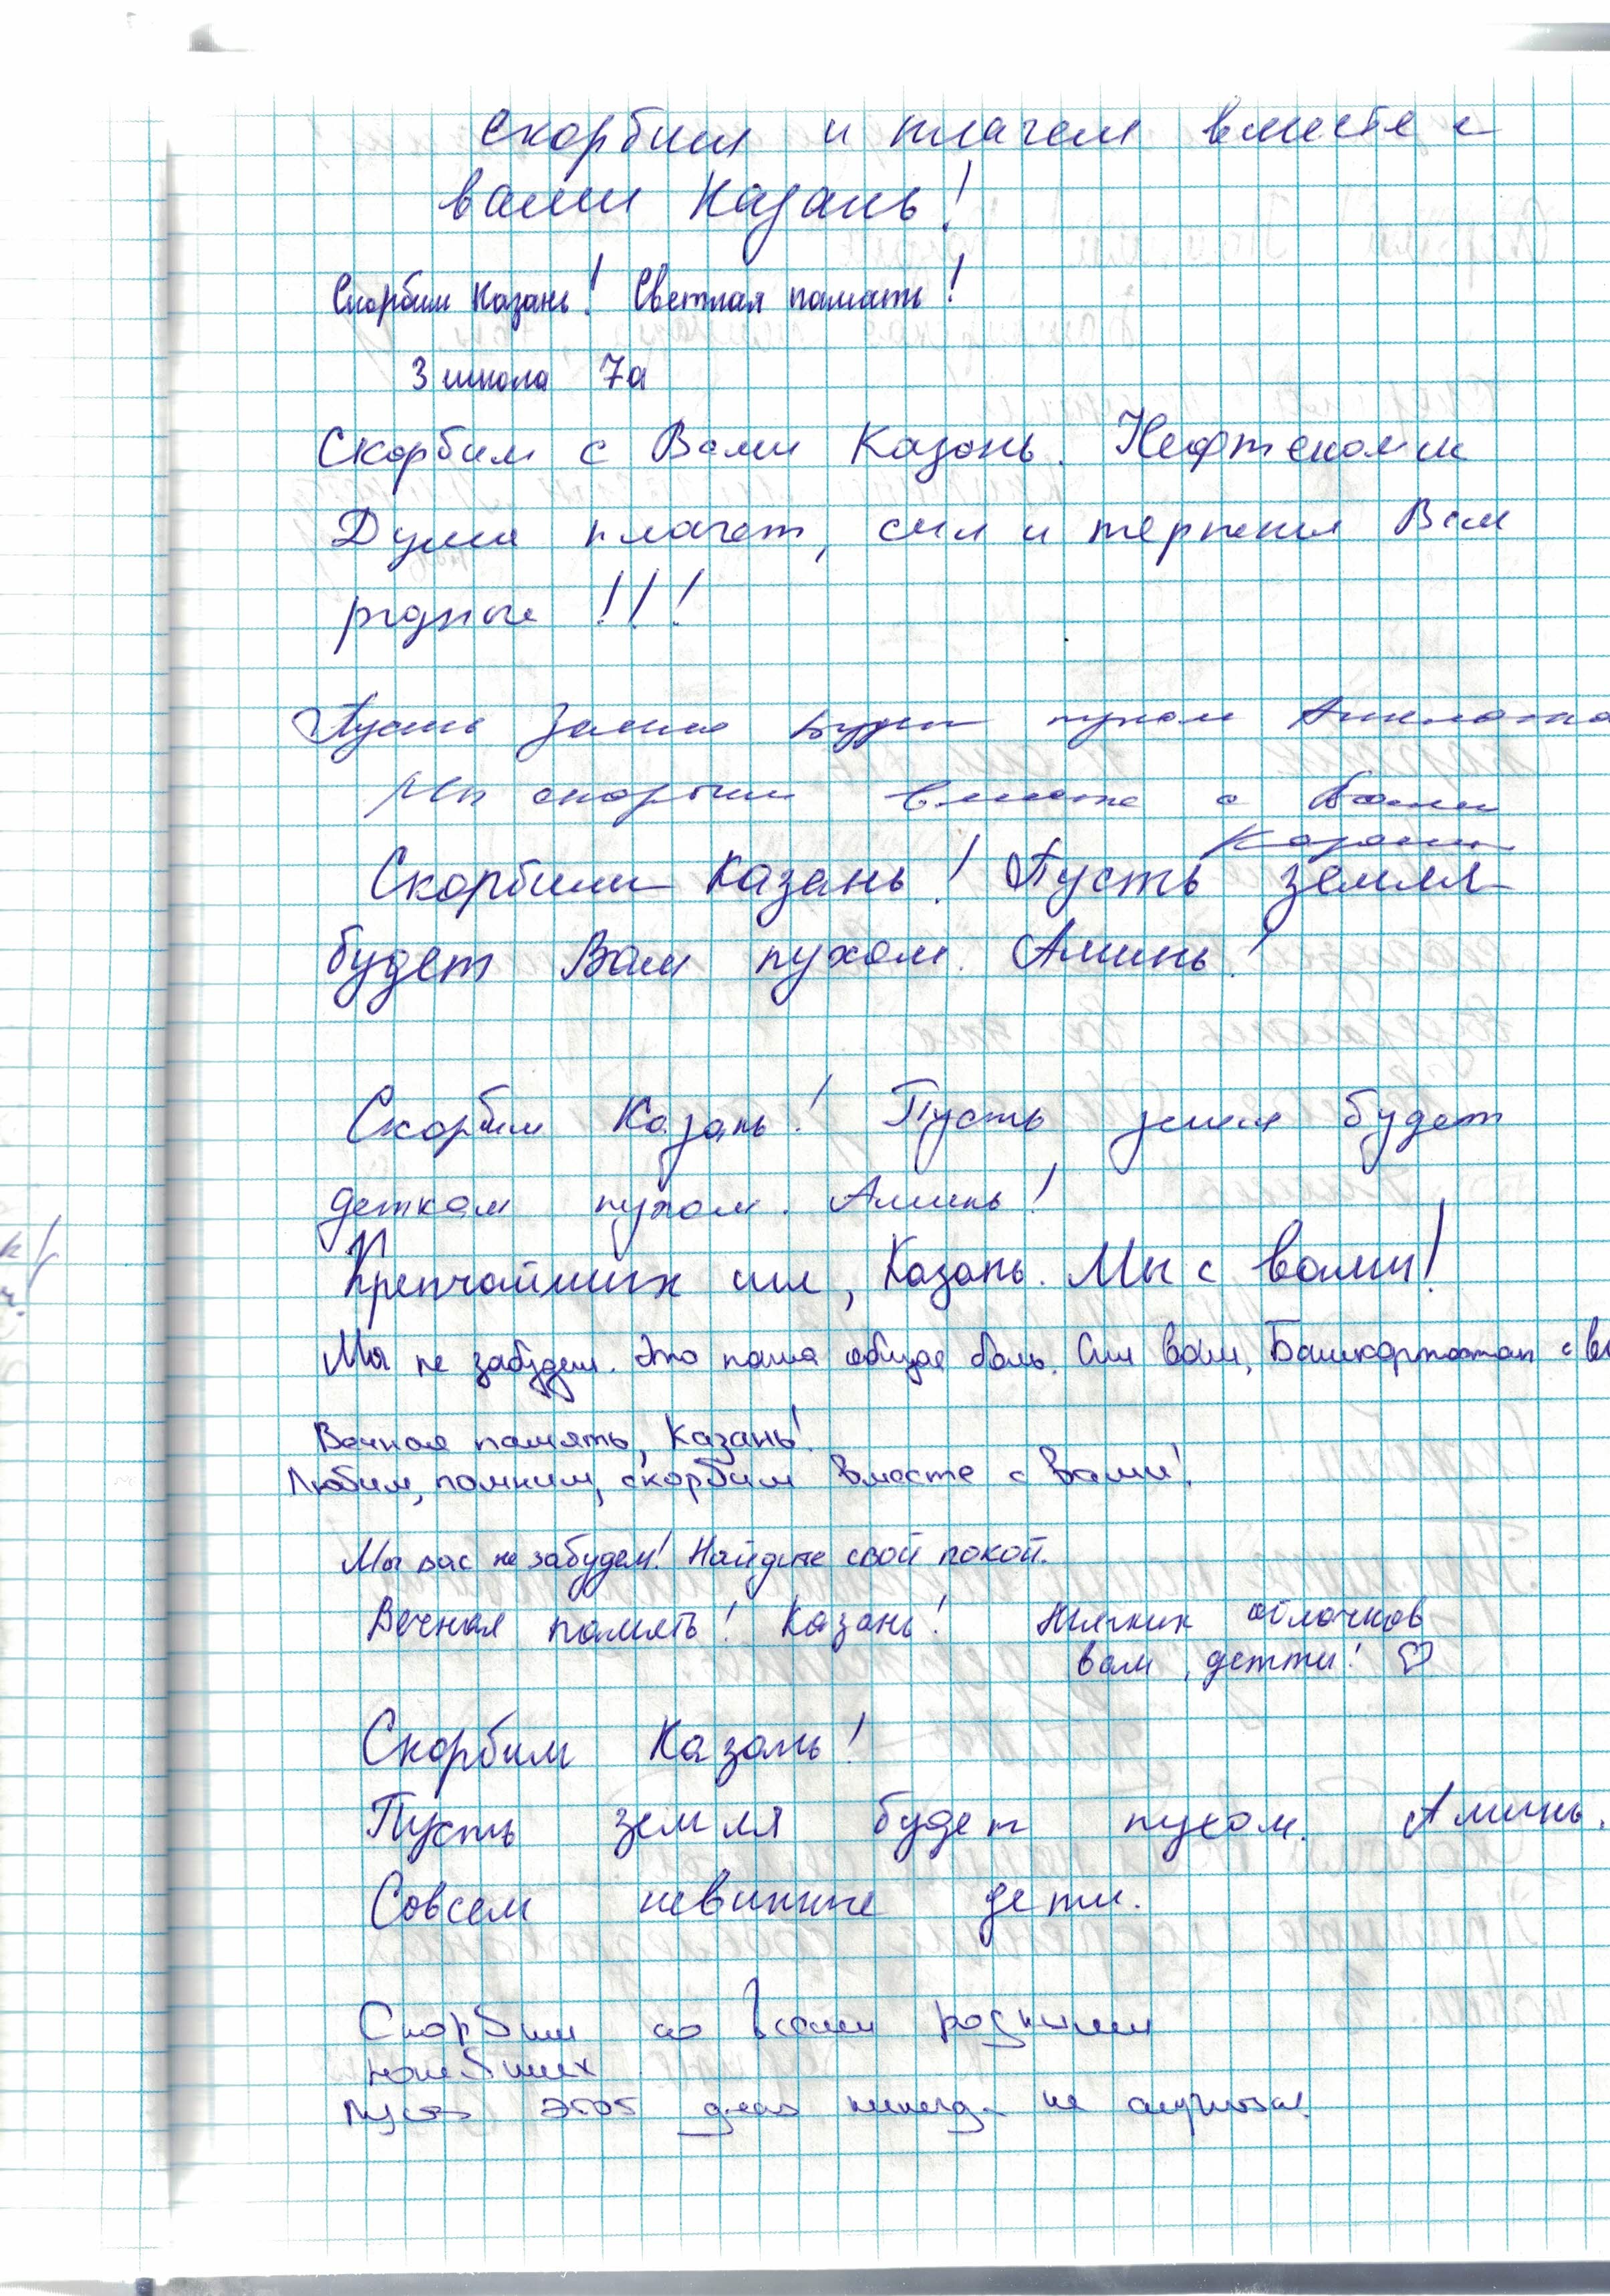 скорбим и плачем вместе с
вами Казань!
Скорбим Казань! Светлая память!
3 школа 7а
Скорбим с Вами Казань. Нефтекамск
Душа плачет, сил и терпения Вам
родные!!!
Пусть земля будет пухом
Мы скорбим вместе с Вами
Казань
Скорбим Казань! Пусть земля
будет Вам пухом. Аминь!
Скорбим Казань! Пусть земля будет
деткам пухом. Аминь!
Крепчайших сил, Казань. Мы с вами!
Мы не забудем. Это наша общая боль. Сил вам, Башкортостан с
Вечная память, Казань!
Любим, помним, скорбим вместе с вами!
Мы вас не забудем! Найдите свой покой.
Вечная память! Казань! Мягких облачков
вам, детти! ♡
Скорбим Казань!
Пусть земля будет пухом. Аминь.
Совсем невинные дети.
Скорбим со всеми родными
погибших
Пусть этот день никогда не